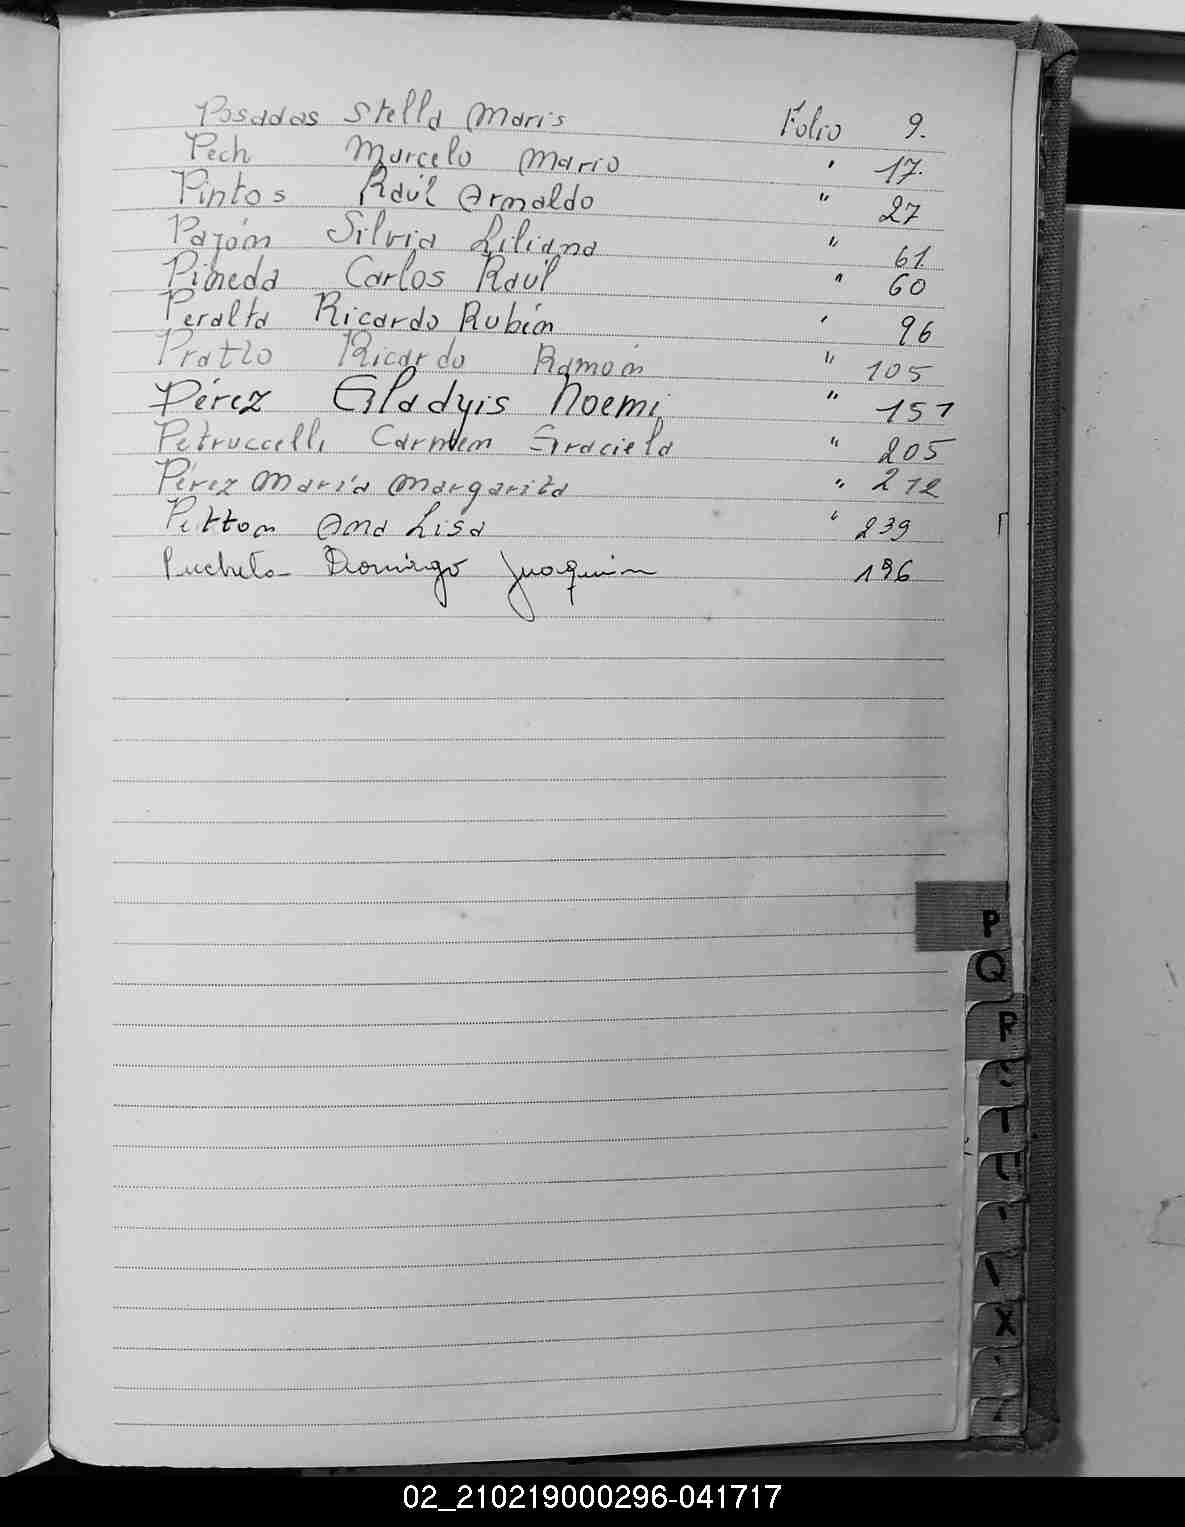 Posadas Stella Maris Folio 9.
Pech Marcelo Mario " 17.
Pintos Raúl Arnaldo " 27
Pazón Silvia Liliana " 61
Pineda Carlos Raúl " 60
Peralta Ricardo Rubén " 96
Pratto Ricardo Ramón " 105
Pérez Gladyis Noemi " 151
Petruccelli Carmen Graciela " 205
Pérez María Margarita " 212
Petton Ana Lisa " 239
Pucheta Domingo Juaquin 196
P
Q
R
S
T
U
X
02_210219000296-041717